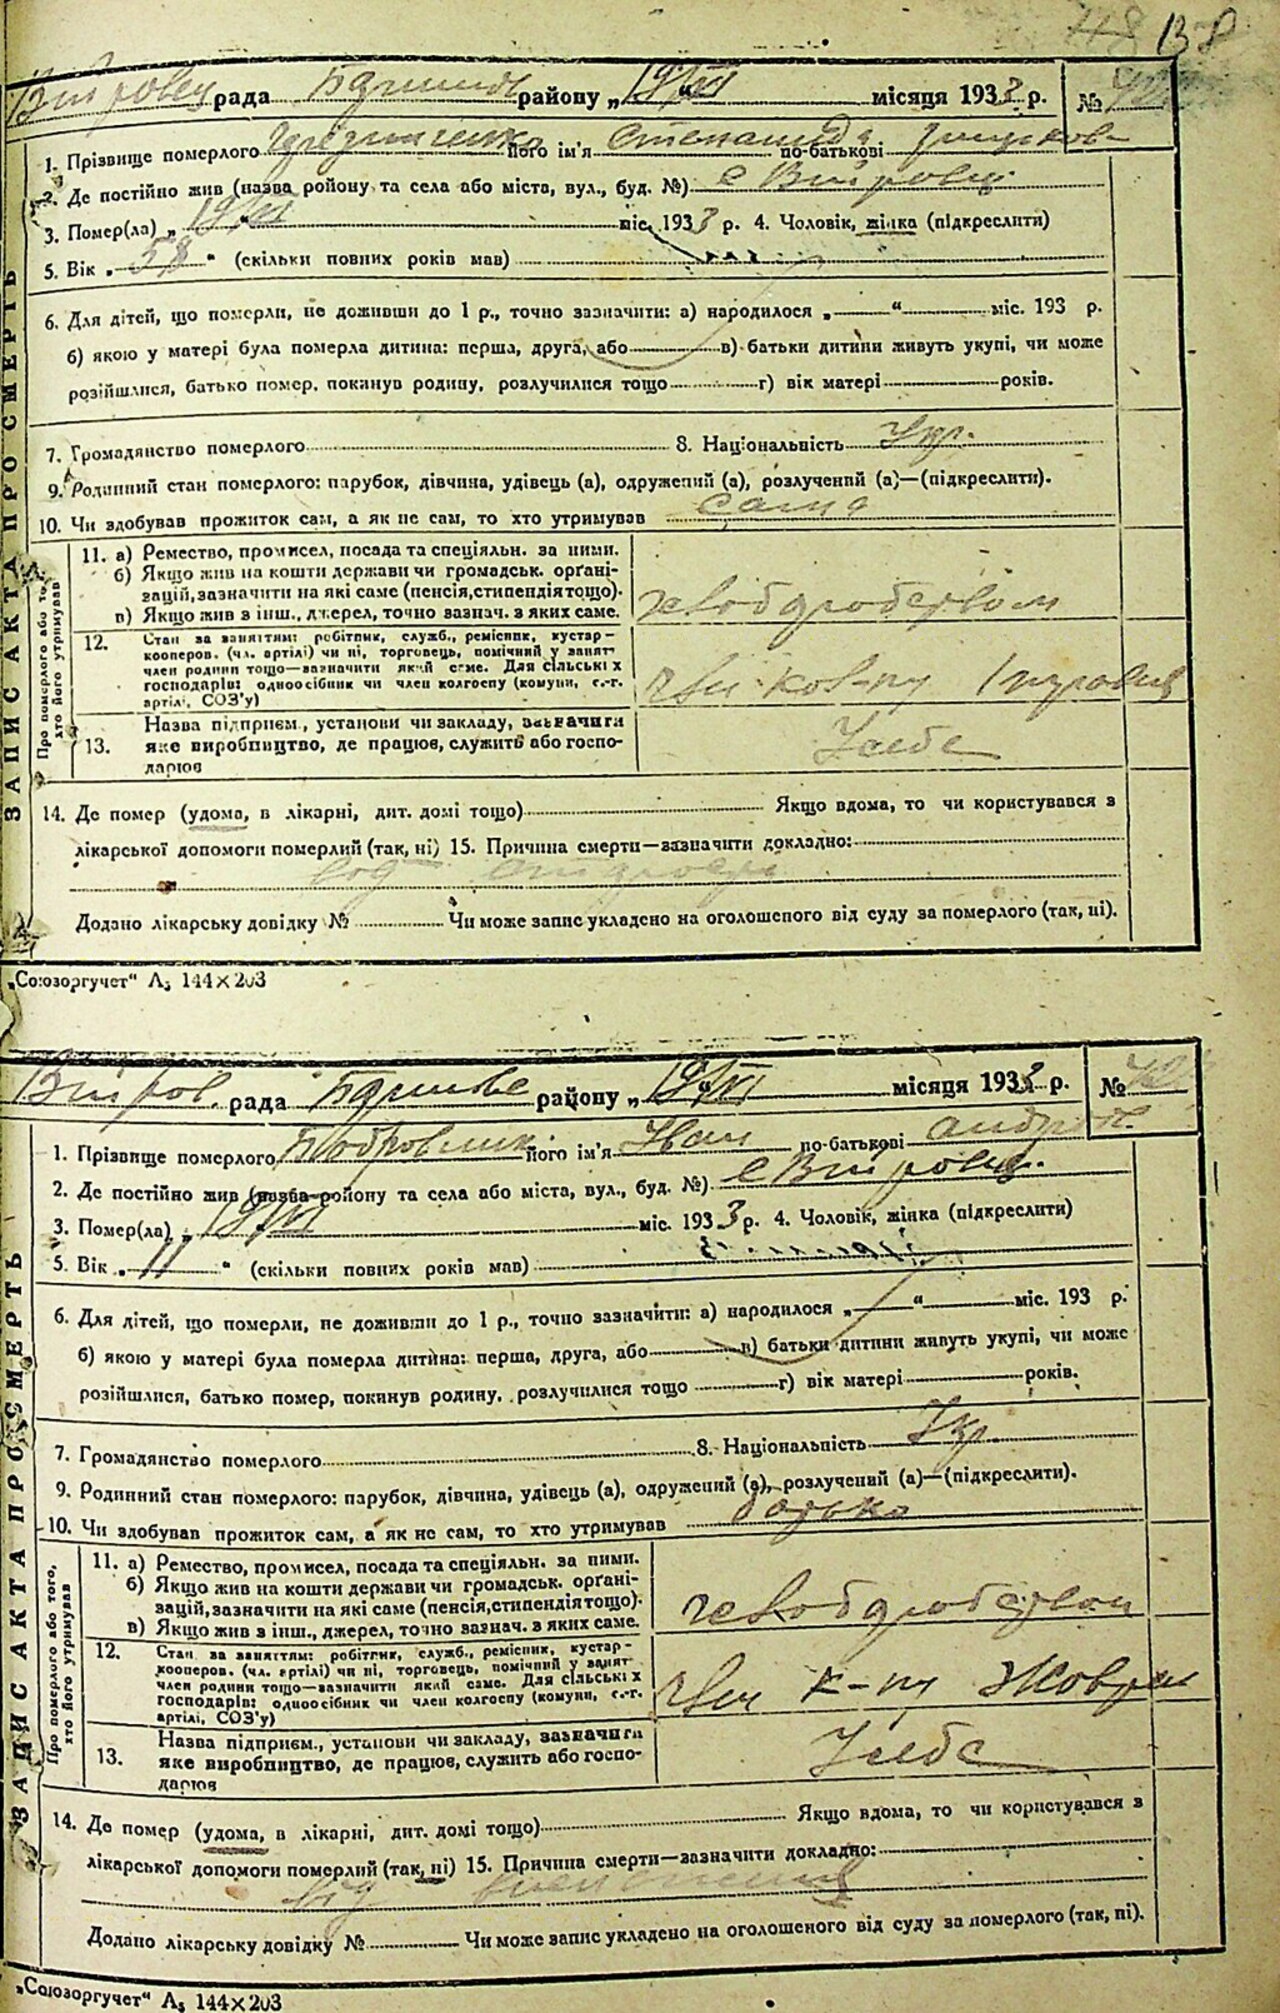 138
рада району „19/VI місяця 1933 р. №
1. Прізвище померлого його ім'я Степанида по-батькові
2. Де постійно жив (назва ройону та села або міста, вул., буд. №) с Вітровці
3. Помер(ла) „19/VI міс. 1933 р. 4. Чоловік, жінка (підкреслити)
5. Вік „58“ (скільки повних років мав)
6. Для дітей, що померли, не доживши до 1 р., точно зазначити: а) народилося „ “ міс. 193 р.
б) якою у матері була померла дитина: перша, друга, або в) батьки дитини живуть укупі, чи може
розійшлися, батько помер, покинув родину, розлучилися тощо г) вік матері років.
7. Громадянство померлого 8. Національність Укр.
9. Родинний стан померлого: парубок, дівчина, удівець (а), одружений (а), розлучений (а)—(підкреслити).
10. Чи здобував прожиток сам, а як не сам, то хто утримував сама
ЗАПИС АКТА ПРО СМЕРТЬ
Про померлого або того, хто його утримував
11. а) Ремество, промисел, посада та спеціяльн. за ними.
б) Якщо жив на кошти держави чи громадськ. орґані-
зацій, зазначити на які саме (пенсія, стипендія тощо).
в) Якщо жив з інш., джерел, точно зазнач. з яких саме.
хлібороbством
12. Стан за заняттям: робітник, служб., ремісник, кустар-
кооперов. (чл. артілі) чи ні, торговець, помічний у занят
член родини тощо—зазначити який саме. Для сільських
господарів: одноосібник чи член колгоспу (комуни, с.-г.
артілі, СОЗ'у)
член
13. Назва підприєм., установи чи закладу, зазначити
яке виробництво, де працює, служить або госпо-
дарює
У себе
14. Де помер (удома, в лікарні, дит. домі тощо) Якщо вдома, то чи користувався з
лікарської допомоги померлий (так, ні) 15. Причина смерти—зазначити докладно:
від
Додано лікарську довідку № Чи може запис укладено на оголошеного від суду за померлого (так, ні).
„Союзоргучет“ А₅ 144×203
Вітров. рада району „19/VI місяця 1933 р. №
1. Прізвище померлого Бобровник його ім'я Іван по-батькові Андр
2. Де постійно жив (назва ройону та села або міста, вул., буд. №) с Вітровці.
3. Помер(ла) „19/VI міс. 1933 р. 4. Чоловік, жінка (підкреслити)
5. Вік „11“ (скільки повних років мав)
6. Для дітей, що померли, не доживши до 1 р., точно зазначити: а) народилося „ “ міс. 193 р.
б) якою у матері була померла дитина: перша, друга, або в) батьки дитини живуть укупі, чи може
розійшлися, батько помер, покинув родину, розлучилися тощо г) вік матері років.
7. Громадянство померлого 8. Національність Укр.
9. Родинний стан померлого: парубок, дівчина, удівець (а), одружений (а), розлучений (а)—(підкреслити).
10. Чи здобував прожиток сам, а як не сам, то хто утримував батько
ЗАПИС АКТА ПРО СМЕРТЬ
Про померлого або того, хто його утримував
11. а) Ремество, промисел, посада та спеціяльн. за ними.
б) Якщо жив на кошти держави чи громадськ. орґані-
зацій, зазначити на які саме (пенсія, стипендія тощо).
в) Якщо жив з інш., джерел, точно зазнач. з яких саме.
хліборобством
12. Стан за заняттям: робітник, служб., ремісник, кустар-
кооперов. (чл. артілі) чи ні, торговець, помічний у занят
член родини тощо—зазначити який саме. Для сільських
господарів: одноосібник чи член колгоспу (комуни, с.-г.
артілі, СОЗ'у)
член к-пу
13. Назва підприєм., установи чи закладу, зазначити
яке виробництво, де працює, служить або госпо-
дарює
У себе
14. Де помер (удома, в лікарні, дит. домі тощо) Якщо вдома, то чи користувався з
лікарської допомоги померлий (так, ні) 15. Причина смерти—зазначити докладно:
від
Додано лікарську довідку № Чи може запис укладено на оголошеного від суду за померлого (так, ні).
„Союзоргучет“ А₅ 144×203